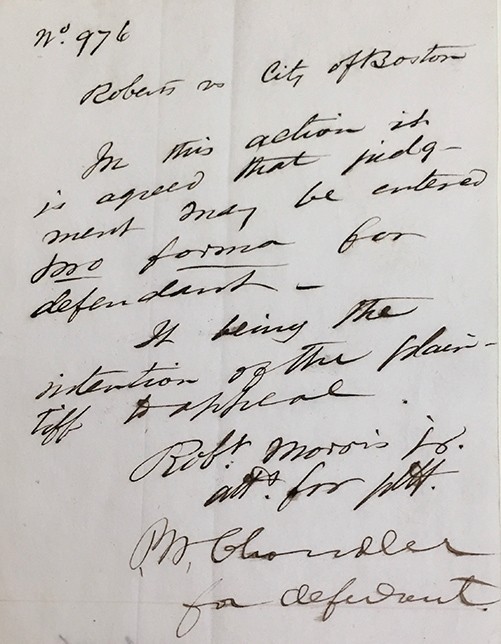 No. 976
Roberts vs City of Boston
In this action it
is agreed that judg-
ment may be entered
pro forma for
defendant —
It being the
intention of the plain-
tiff to appeal.
Robt. Morris Jr.
atty. for pltff.
P. W. Chandler
for defendant.